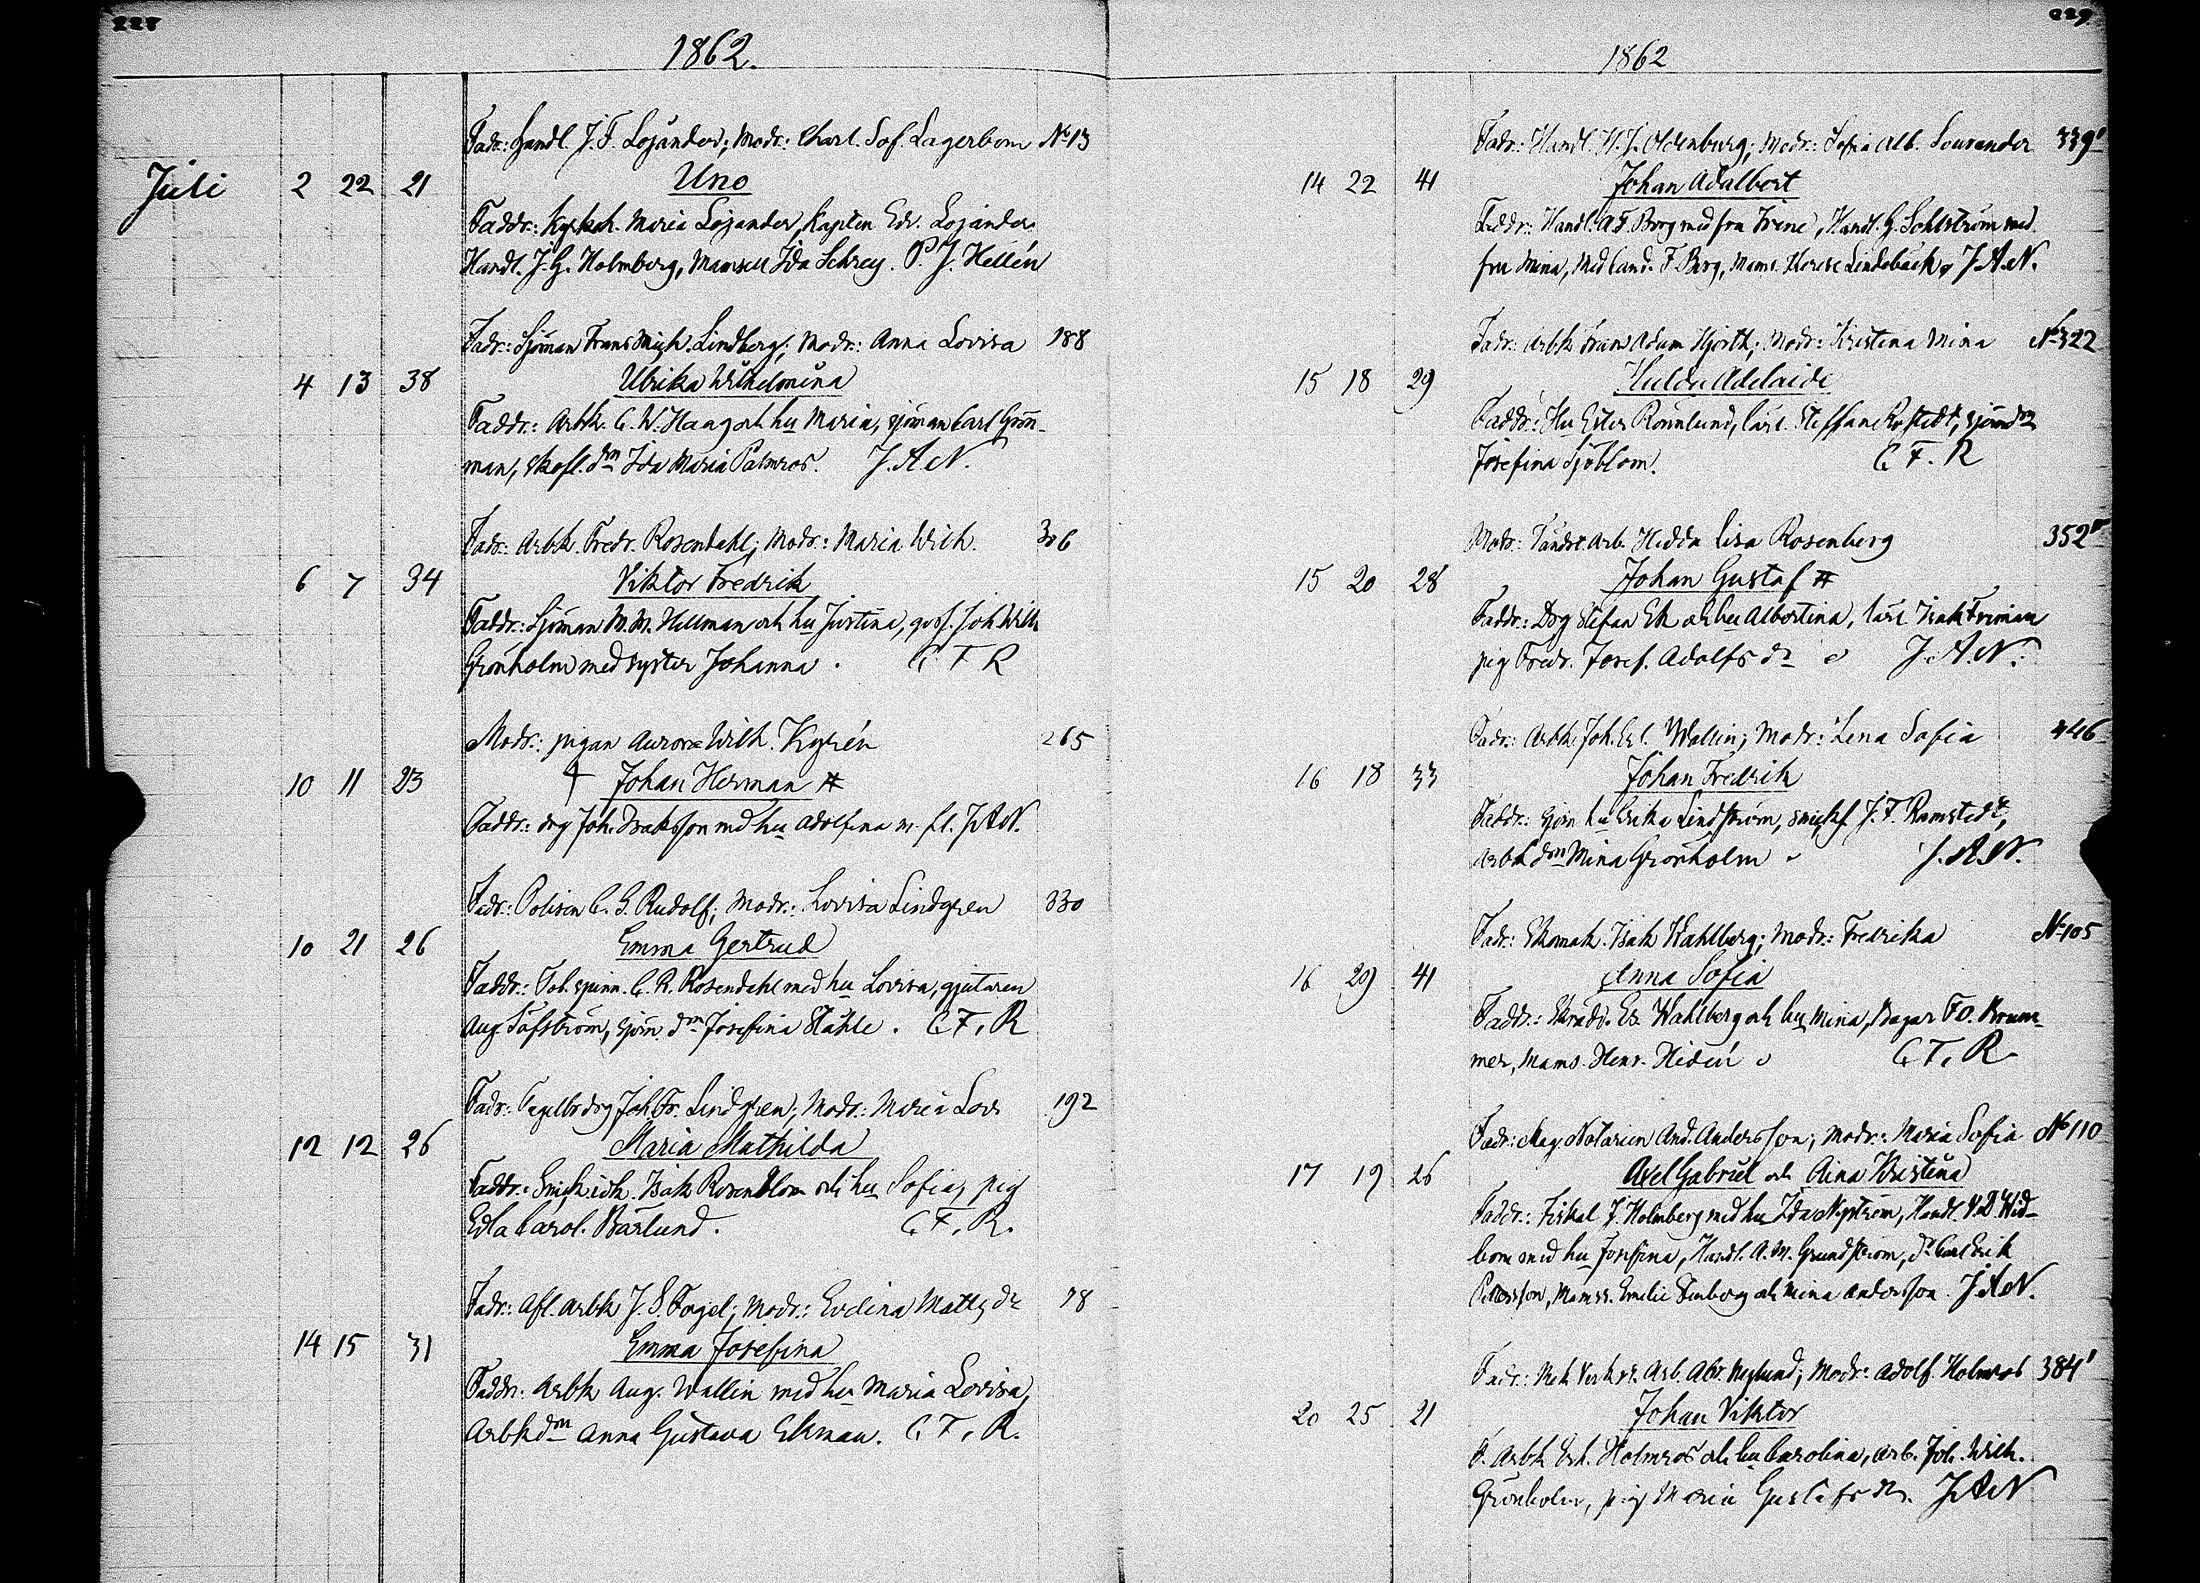 228
1862.
Fadr: Handl. J. F. Lojander; Modr: Charl. Sof. Lagerbom No 13
Juli 2 22 21 Uno
Faddr: Maria Lojander, Kapten Edv. Lojander
Handl. J. G. Holmberg, Mamsell Ida Schrey. P. J. Hellén
Fadr: Sjöman Frans Mich. Lindberg; Modr: Anna Lovisa 188
4 13 38 Ulrika Wilhelmina
Faddr: Arbk. C. W. Haag och hu Maria, sjöman Carl Grön-
man, skofl. dm Ida Maria Palmros. J. A. N.
Fadr: Arbk. Fredr. Rosendahl; Modr: Maria Wilh. 306
6 7 34 Viktor Fredrik
Faddr: Sjöman M. M. Hellman och hu Justina, Joh Wilh
Grönholm med syster Johanna. C F R
Modr: pigan Aurora Wilh. Kyrén 265
10 11 23 Johan Herman #
Faddr: drg Joh. Isaksson med hu Adolfina m. fl. J. A. N.
Fadr: Polisen C. G. Rudolf; Modr: Lovisa Lindgren 330
10 21 26 Emma Gertrud
Faddr: Tob. spinn. C. R. Rosendahl med hu Lovisa, gjutaren
Aug. Säfström, sjöm. dm Josefina Ståhle. C F. R
Fadr: drg Joh. Fr. Lindgren; Modr: Maria Lovs 192
12 12 26 Maria Mathilda
Faddr: Isak Rosenblom och hu Sofia, pig
Edla Carol. Bärlund. C. F. R.
Fadr: Afl. Arbk J. S. Fogel; Modr: Evelina Matts dr 78
14 15 31 Emma Josefina
Faddr: Arbk Aug. Wallin med hu Maria Lovisa,
Arbk dm Anna Gustava Ekman. C. F. R.
229
1862
Fadr: Handl. H. J. Oldenburg; Modr: Sofia Alb. Sourander 339
14 22 41 Johan Adalbert
Faddr: Handl. A F. Borg med fru Irene, Handl. G. Sohlström med
fru Mina, Med. Cand. F. Berg, Mams. Therese Lindebäck. J. A. N.
Fadr: Arbk Frans Adam Hjorth; Modr: Kristina Mina No 322
15 18 29 Hulda Adelaide
Faddr: Hu Ester Rönnlund, lärl. Steffan Rofstedt, sjöm dr
Josefina Sjöblom. C. F. R
Modr: Arb. Hedda Lisa Rosenberg 352
15 20 28 Johan Gustaf #
Faddr: Drg Stefan Ek och hu Albertina, lärl Isak Friman
pig Fredr. Josef. Adolfs dr J. A. N.
Fadr: Arbk Joh. Erl. Wallin; Modr: Lena Sofia 446
16 18 33 Johan Fredrik
Faddr: sjöm hu Erika Lindström, J. F. Ramstedt,
Arbk dm Mina Grönholm J. A. N.
Fadr: Skomak. Isak Wahlberg; Modr: Fredrika No 105
16 29 41 Anna Sofia
Faddr: Skradd. Es. Wahlberg och hu Mina, Bagar Brum-
mer, Mams. Henr. Hidén C. F. R
Fadr: Mag. Notarien And. Andersson; Modr: Maria Sofia No 110
17 19 26 Axel Gabriel och Aina Kristina
Faddr: Fiskal J. Holmberg med hu Ida Nyström, Handl. Wid-
bom med hu Josefina, Handl. A. M. Grundström, do Carl Erik
Pettersson, Mamss. Emilie Stenberg och Mina Andersson. J. A. N.
Fadr: Arb. Abr. Neglund; Modr: Adolf. Holmros 384
20 25 21 Johan Viktor
F. Arbk Erk. Holmros och hu Carolina, Arb. Joh. Wilh.
Grönholm, pig Maria Gustafs dr. J. A. N